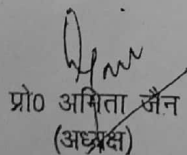 प्रो0 अमिता जैन
(अध्यक्ष)